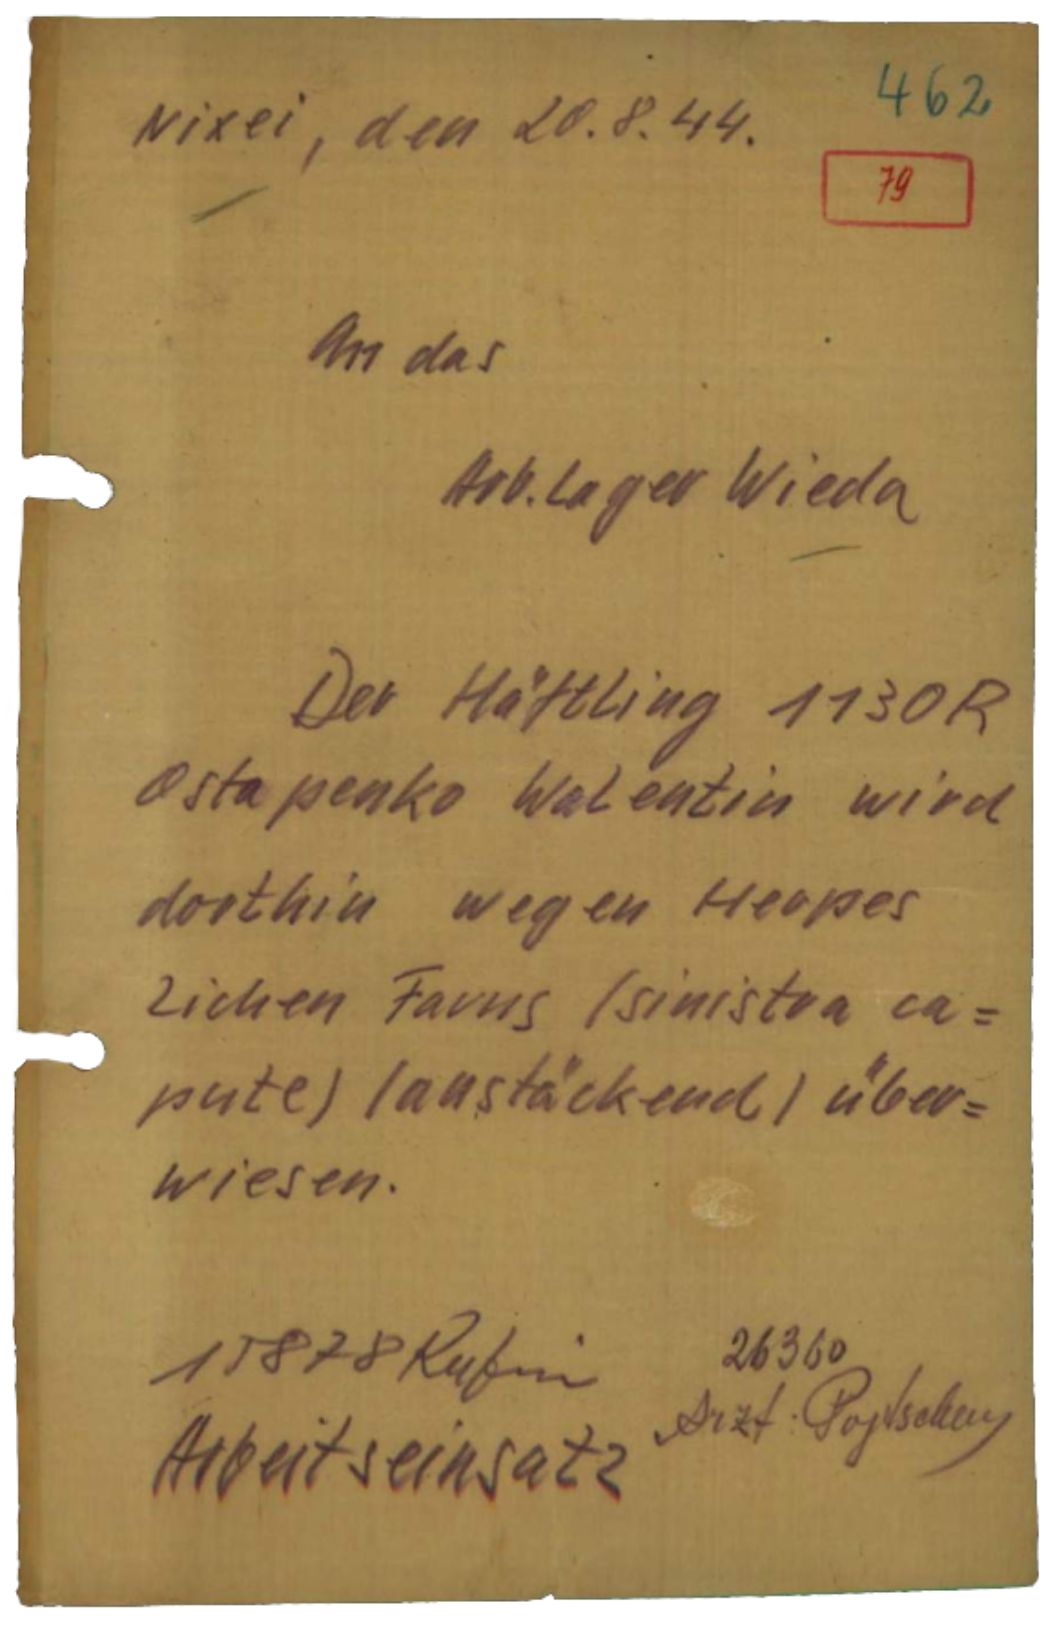 462
Nixei, den 20.8.44.
79
An das
Arb.Lager Wieda
Der Häftling 1130R
Ostapenko Walentin wird
dorthin wegen Herpes
Zichen Favus (sinistra ca=
pute) (anstäckend) über=
wiesen.
15878 Rufin
26360
Arbeitseinsatz
Arzt.